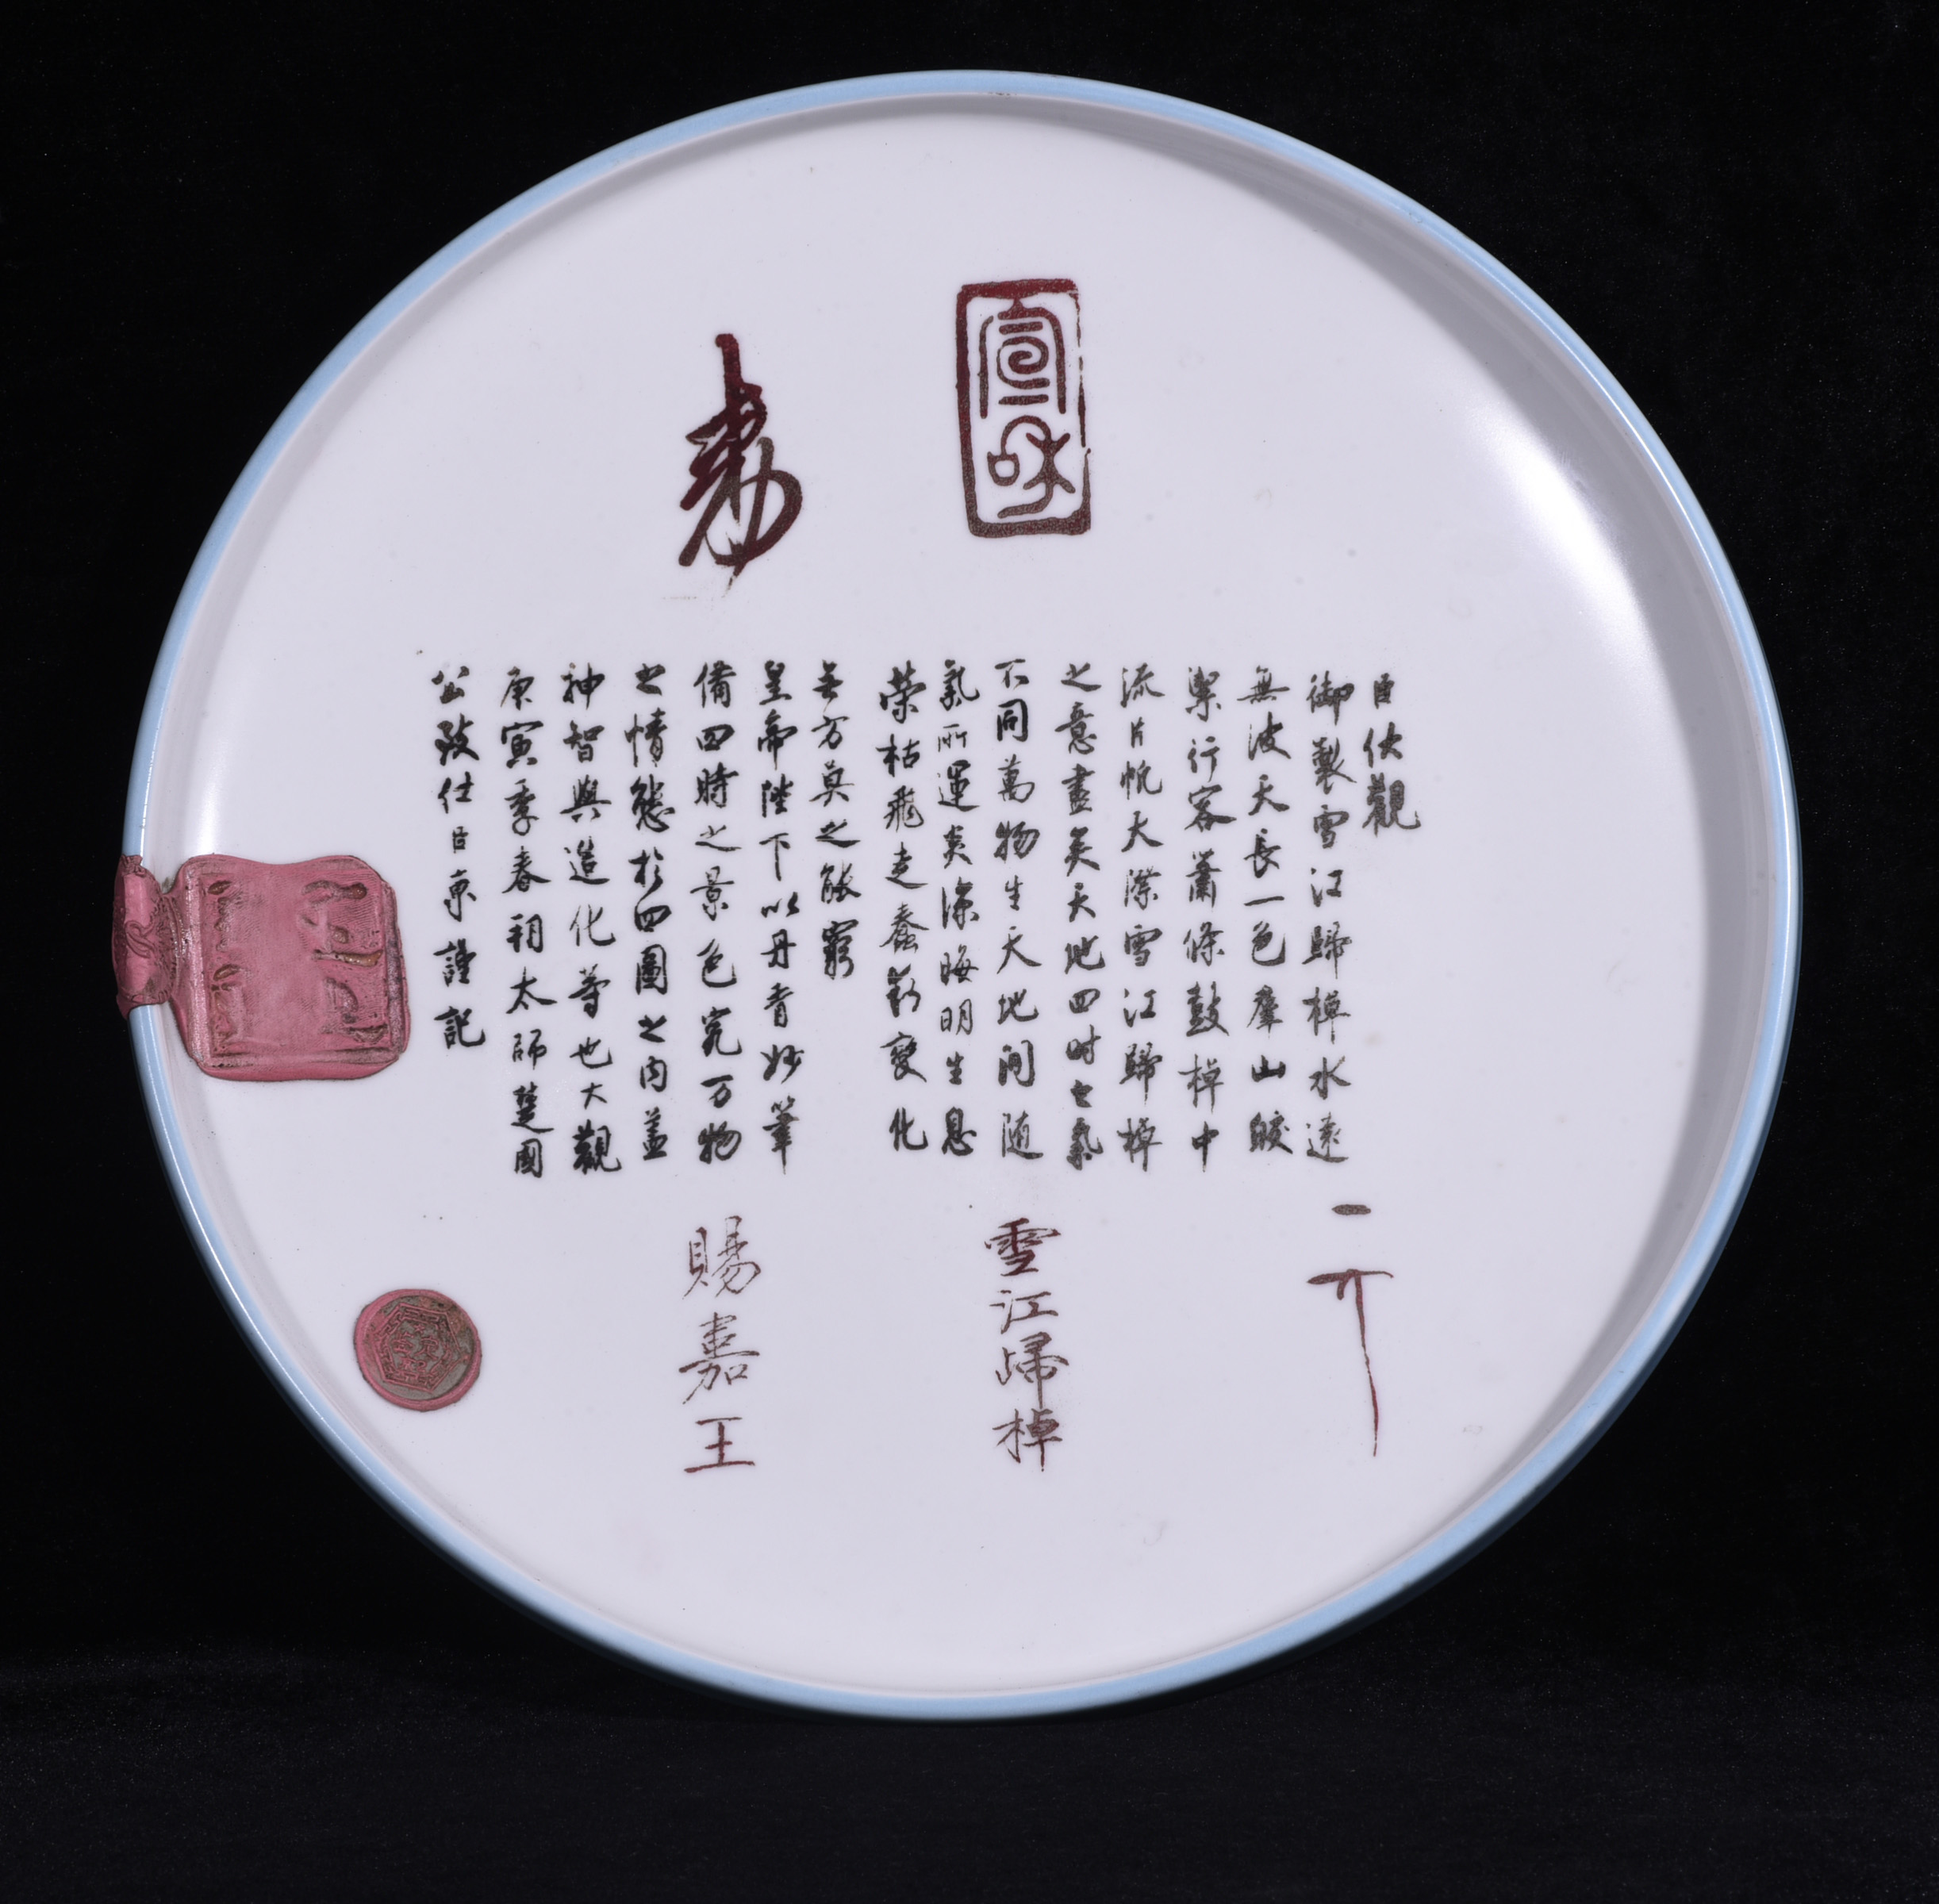 宣和
臣伏觀
御製雪江歸棹水遠
無波天長一色羣山皎
潔行客蕭條鼓棹中
流片帆天際雪江歸棹
之意盡矣天地四时之氣
不同萬物生天地间随
氣所運炎涼晦明生息
榮枯飛走蠢動變化
无方莫之能窮
皇帝陛下以丹青妙筆
備四時之景色究万物
之情態於四圖之内盖
神智與造化等也大觀
庚寅季春朔太師楚國
公致仕臣京謹記
雪江歸棹
賜嘉王